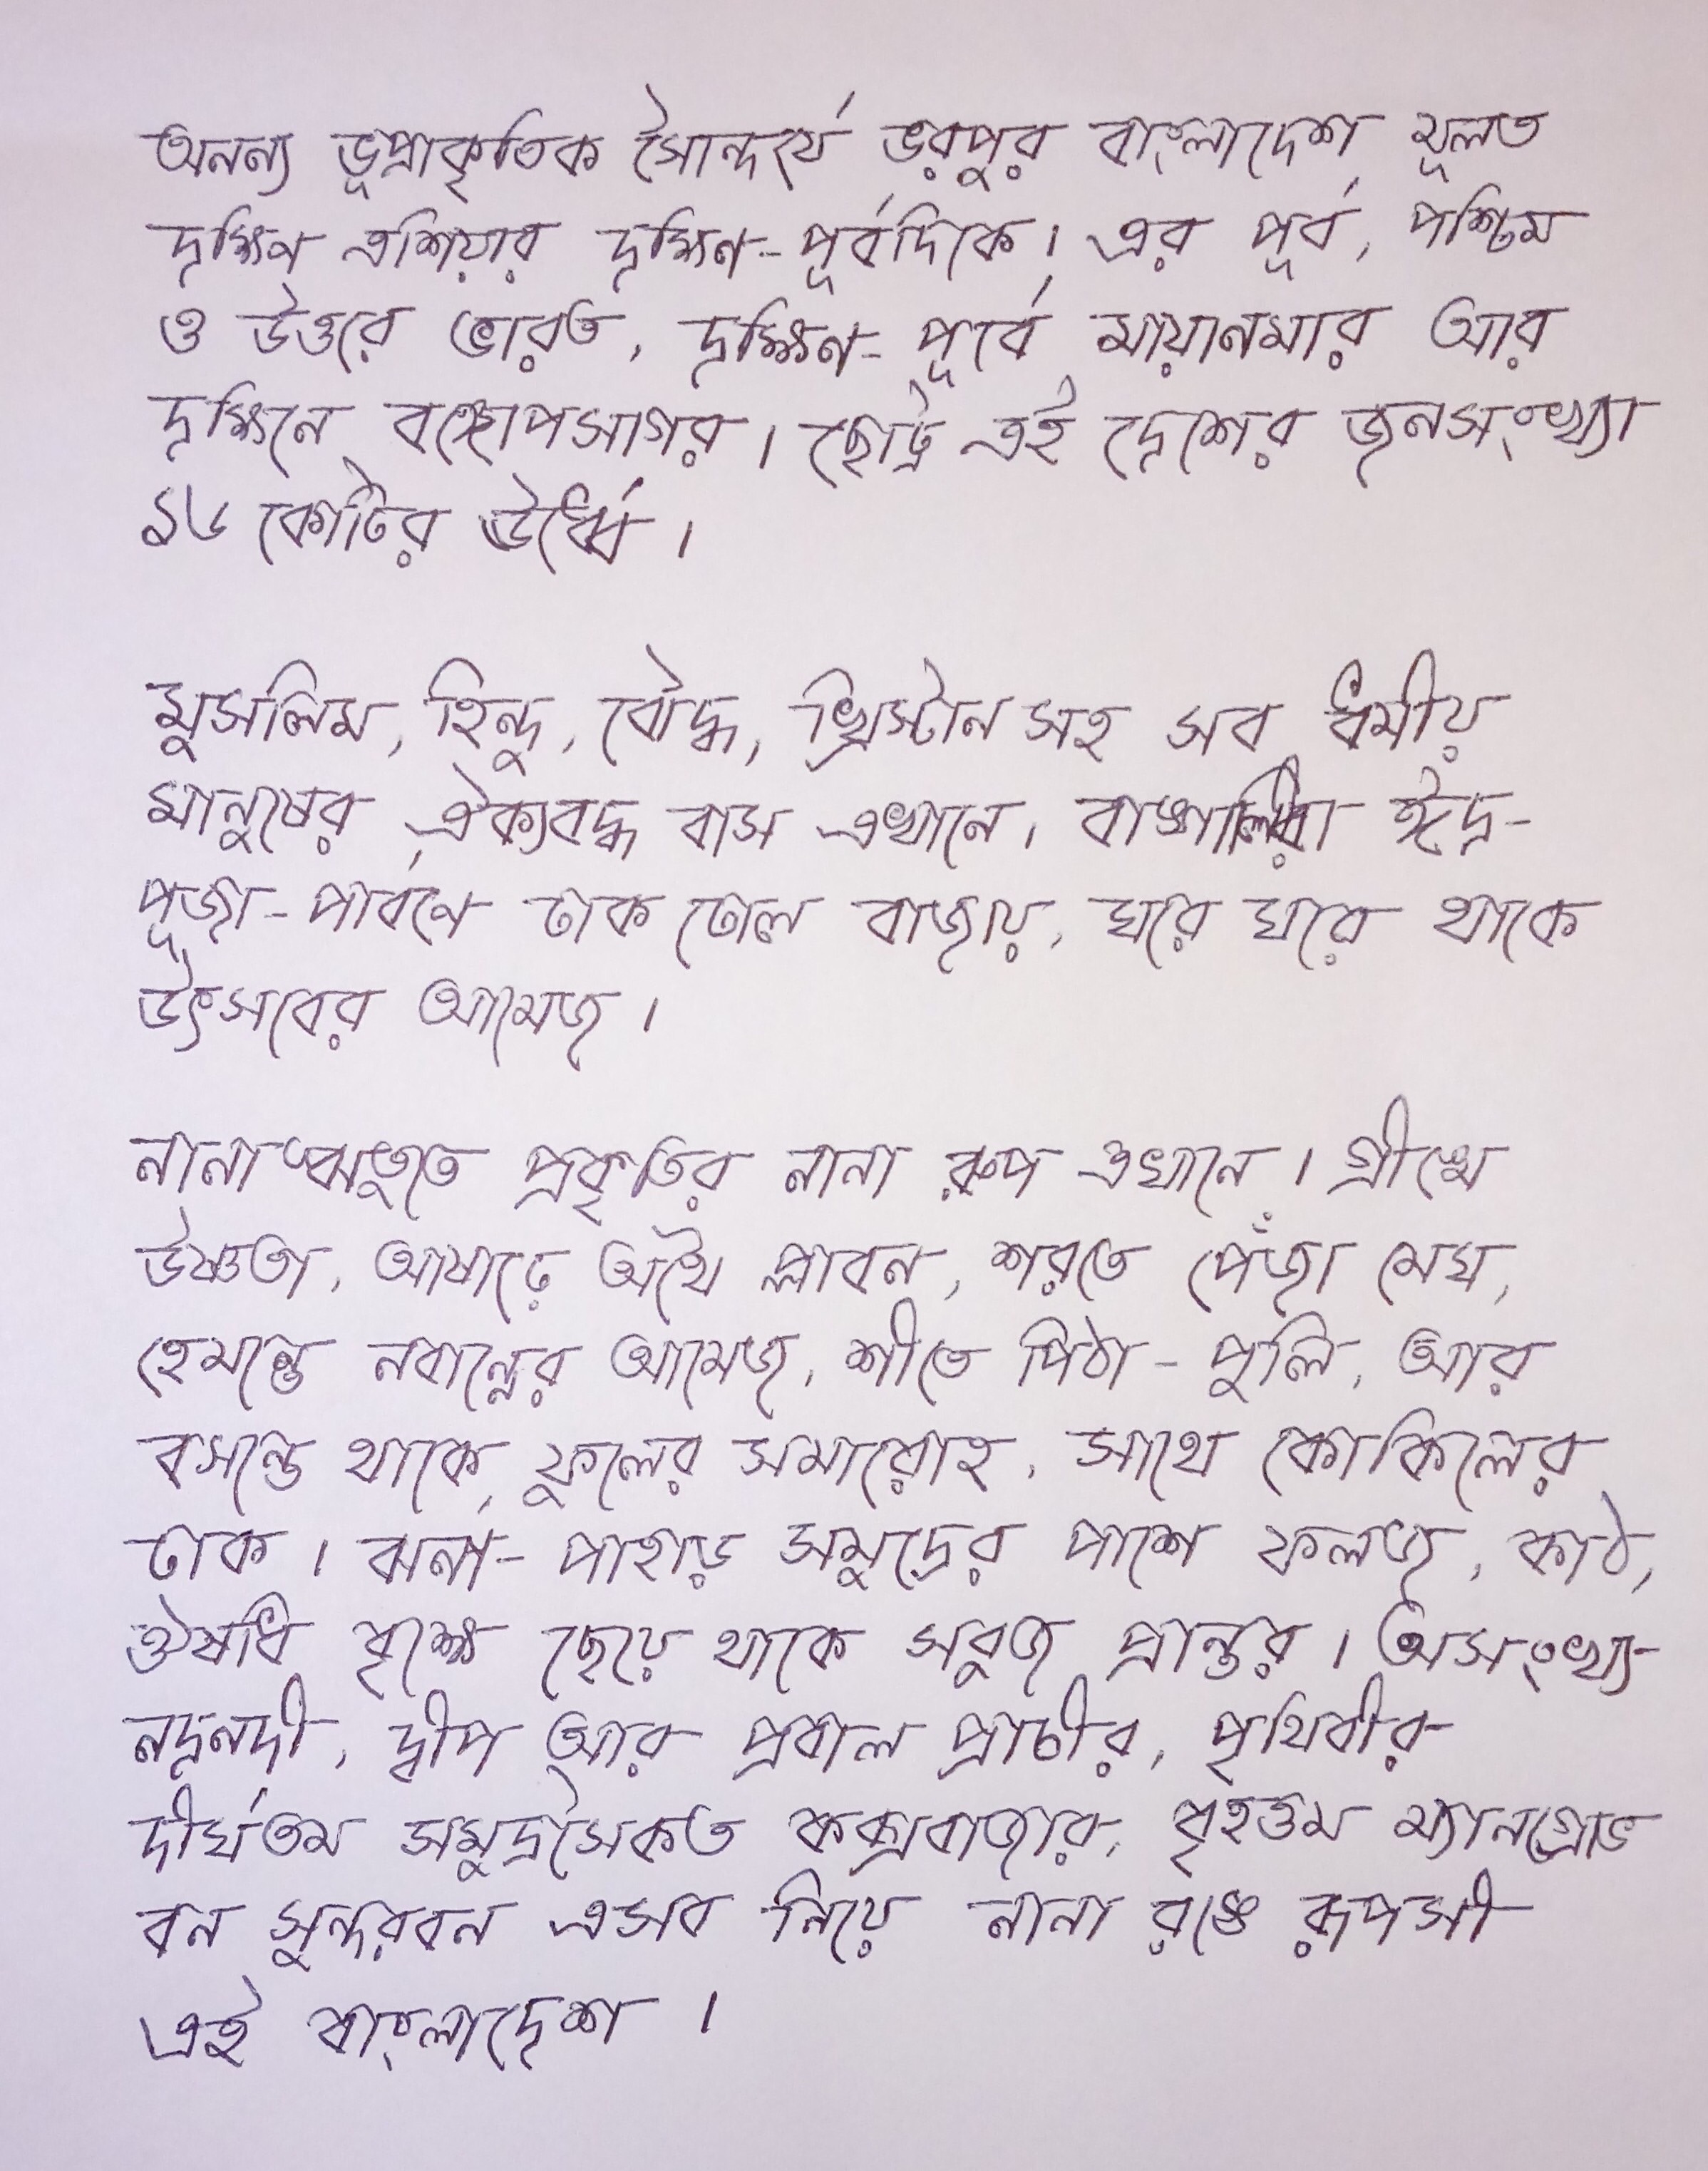 অনন্য ভূপ্রাকৃতিক সৌন্দর্যে ভরপুর বাংলাদেশ মূলত
দক্ষিণ এশিয়ার দক্ষিণ-পূর্বদিকে। এর পূর্ব, পশ্চিম
ও উত্তরে ভারত, দক্ষিণ-পূর্বে মায়ানমার আর
দক্ষিনে বঙ্গোপসাগর। ছোট্ট এই দেশের জনসংখ্যা
১৬ কোটির ঊর্ধ্বে।

মুসলিম, হিন্দু, বৌদ্ধ, খ্রিস্টান সহ সব ধর্মীয়
মানুষের ঐক্যবদ্ধ বাস এখানে। বাঙ্গালিরা ঈদ-
পূজা-পার্বনে ঢাক ঢোল বাজায়, ঘরে ঘরে থাকে
উৎসবের আমেজ।

নানা ঋতুতে প্রকৃতির নানা রুপ এখানে। গ্রীষ্মে
উষ্ণতা, আষাঢ়ে অথৈ প্লাবন, শরতে পেঁজা মেঘ,
হেমন্তে নবান্নের আমেজ, শীতে পিঠা-পুলি, আর
বসন্তে থাকে ফুলের সমারোহ, সাথে কোকিলের
ডাক। ঝর্ণা-পাহাড় সমুদ্রের পাশে ফলজ, কাঠ,
ঔষধি বৃক্ষে ছেয়ে থাকে সবুজ প্রান্তর। অসংখ্য
নদনদী, দ্বীপ আর প্রবাল প্রাচীর, পৃথিবীর
দীর্ঘতম সমুদ্রসৈকত কক্সবাজার, বৃহত্তম ম্যানগ্রোভ
বন সুন্দরবন এসব নিয়ে নানা রঙে রূপসী
এই বাংলাদেশ।